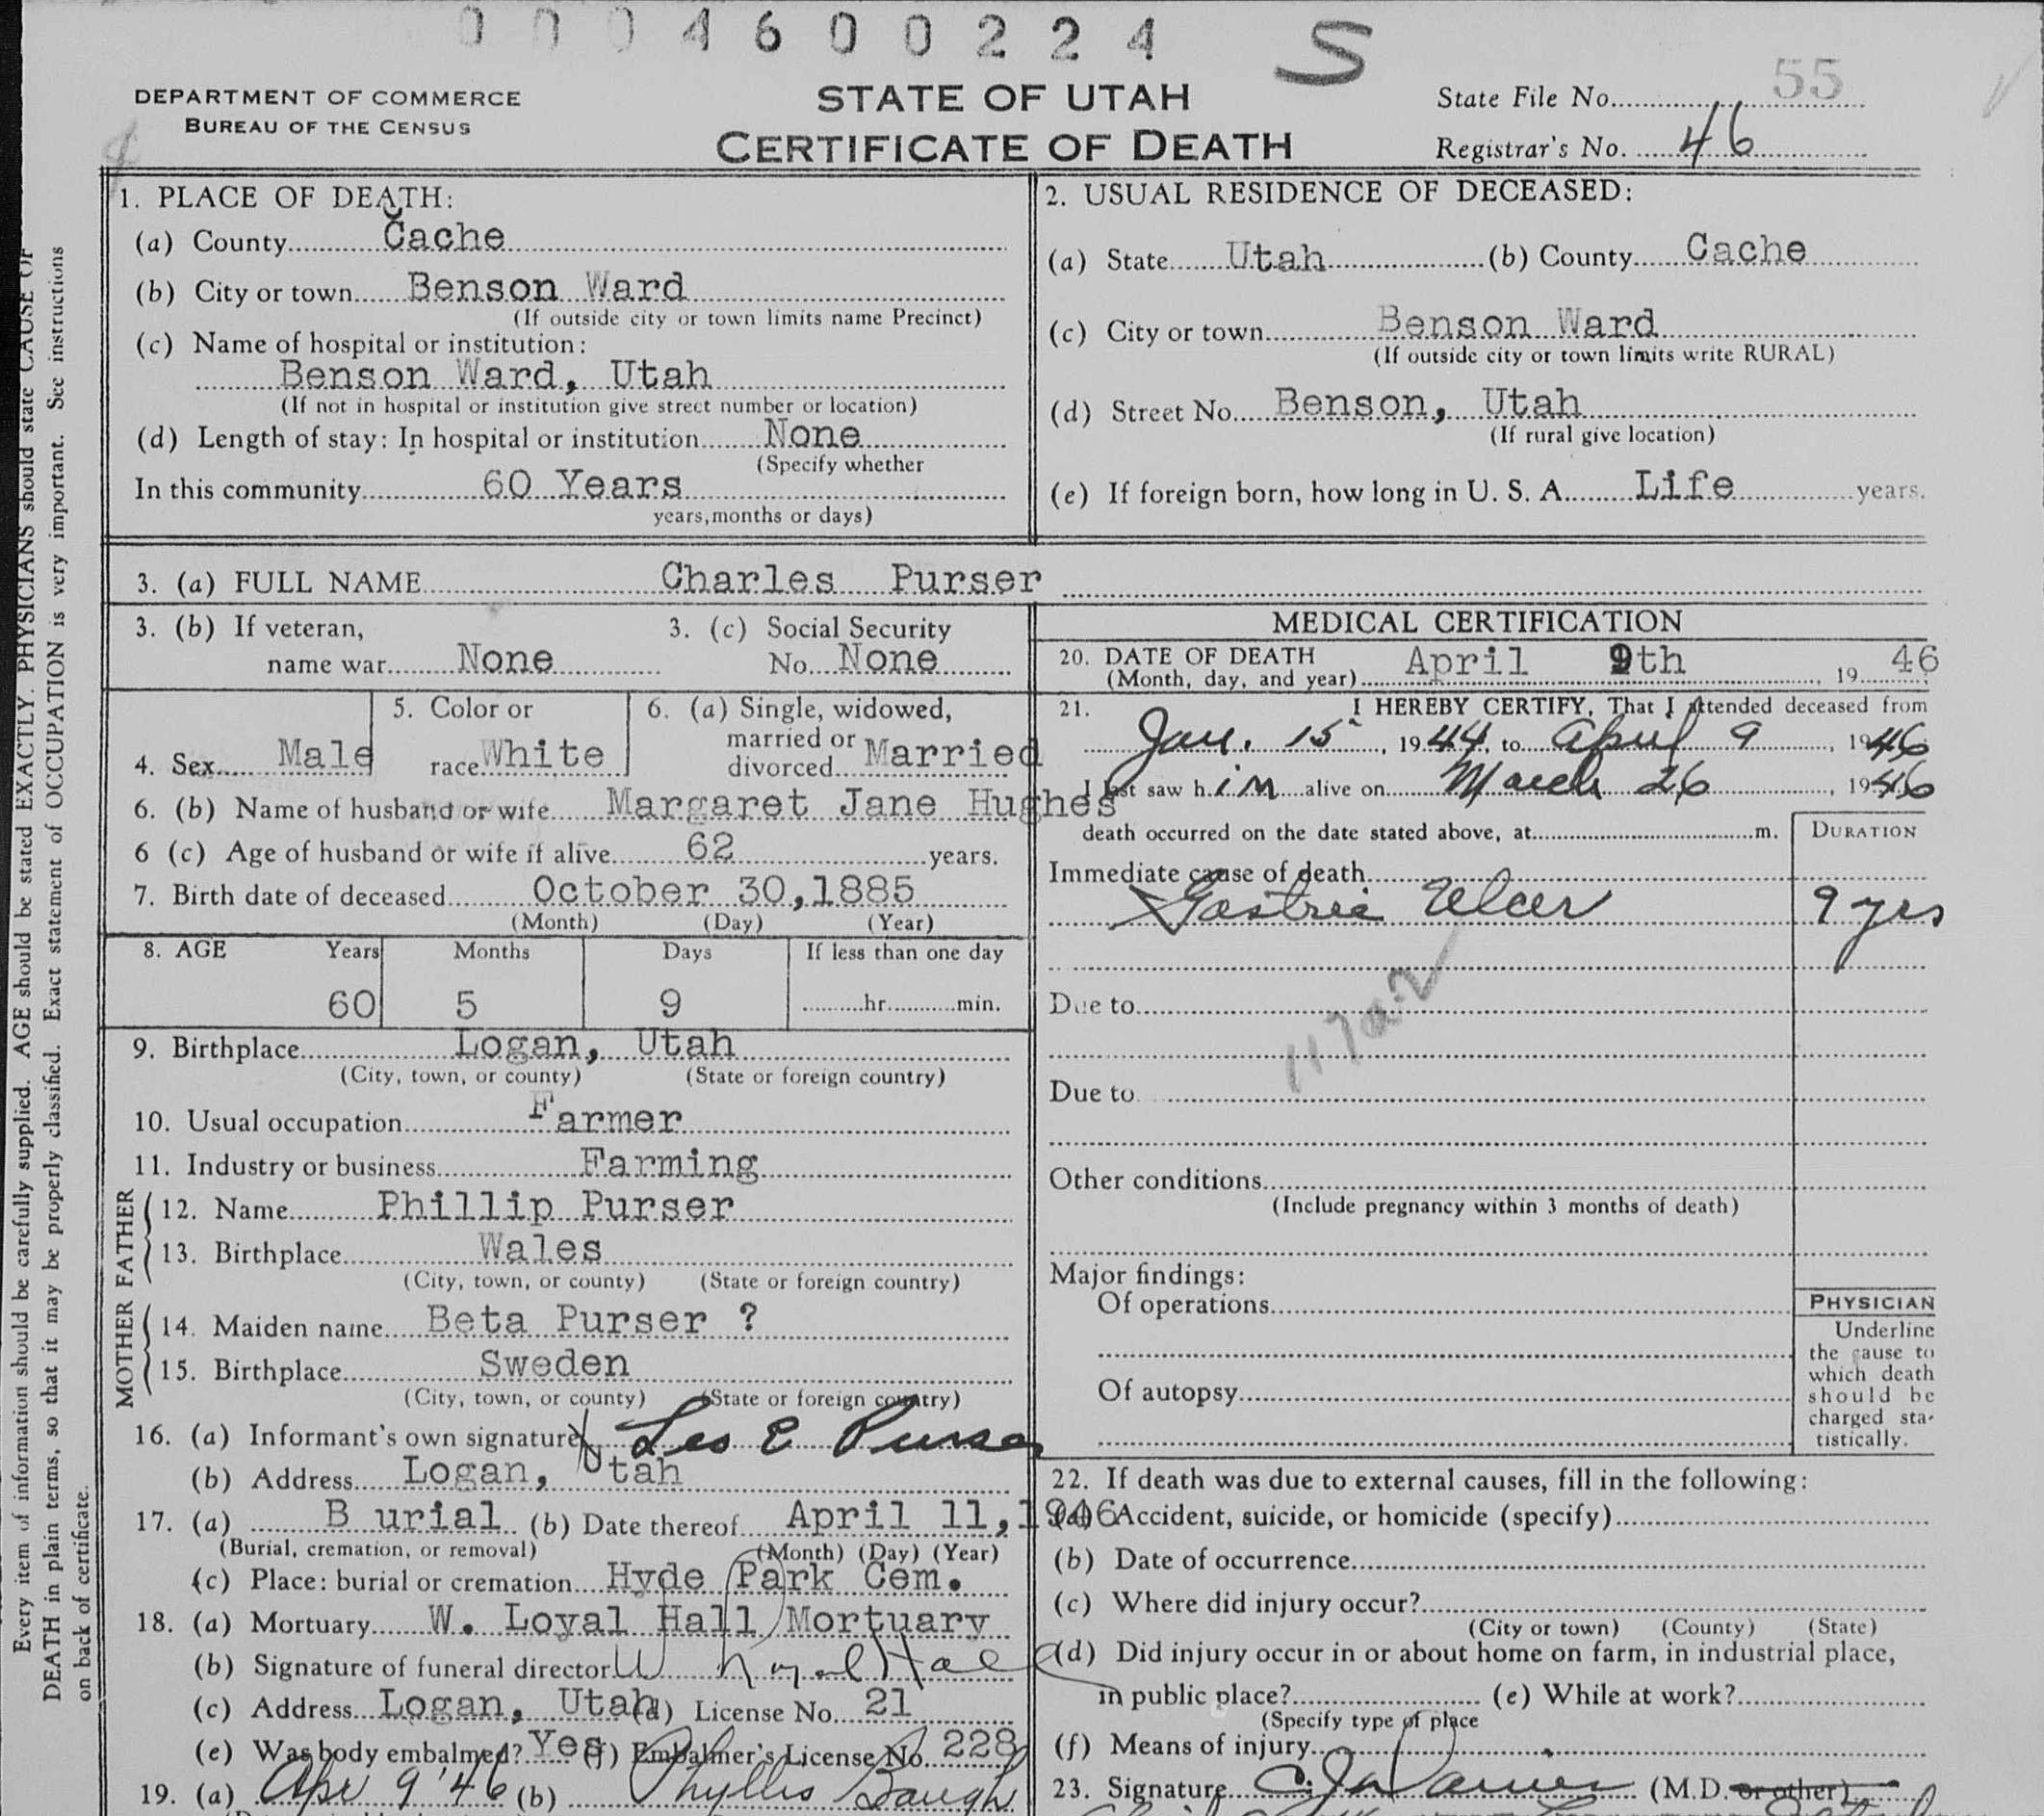 0 0 0 4 6 0 0 2 2 4 S
DEPARTMENT OF COMMERCE
BUREAU OF THE CENSUS
STATE OF UTAH
CERTIFICATE OF DEATH
State File No. 55
Registrar's No. 46
Every item of information should be carefully supplied. AGE should be stated EXACTLY. PHYSICIANS should state CAUSE OF
DEATH in plain terms, so that it may be properly classified. Exact statement of OCCUPATION is very important. See instructions
on back of certificate.
1. PLACE OF DEATH:
(a) County Cache
(b) City or town Benson Ward
(If outside city or town limits name Precinct)
(c) Name of hospital or institution:
Benson Ward, Utah
(If not in hospital or institution give street number or location)
(d) Length of stay: In hospital or institution None
(Specify whether
In this community 60 Years
years, months or days)
2. USUAL RESIDENCE OF DECEASED:
(a) State Utah (b) County Cache
(c) City or town Benson Ward
(If outside city or town limits write RURAL)
(d) Street No. Benson, Utah
(If rural give location)
(e) If foreign born, how long in U. S. A. Life years.
3. (a) FULL NAME Charles Purser
3. (b) If veteran,
name war None
3. (c) Social Security
No. None
4. Sex Male
5. Color or
race White
6. (a) Single, widowed,
married or
divorced Married
6. (b) Name of husband or wife Margaret Jane Hughes
6 (c) Age of husband or wife if alive 62 years.
7. Birth date of deceased October 30, 1885
(Month) (Day) (Year)
8. AGE Years Months Days If less than one day
60 5 9 hr. min.
9. Birthplace Logan, Utah
(City, town, or county) (State or foreign country)
10. Usual occupation Farmer
11. Industry or business Farming
FATHER
12. Name Phillip Purser
13. Birthplace Wales
(City, town, or county) (State or foreign country)
MOTHER
14. Maiden name Beta Purser ?
15. Birthplace Sweden
(City, town, or county) (State or foreign country)
16. (a) Informant's own signature Leo E Purser
(b) Address Logan, Utah
17. (a) B urial (b) Date thereof April 11, 1946
(Burial, cremation, or removal) (Month) (Day) (Year)
(c) Place: burial or cremation Hyde Park Cem.
18. (a) Mortuary W. Loyal Hall Mortuary
(b) Signature of funeral director W Loyal Hall
(c) Address Logan, Utah (d) License No. 21
(e) Was body embalmed? Yes (f) Embalmer's License No. 228
19. (a) Apr 9 '46 (b) Phyllis Baugh
MEDICAL CERTIFICATION
20. DATE OF DEATH
(Month, day, and year) April 9th, 19 46
21. I HEREBY CERTIFY, That I attended deceased from
Jan. 15, 1944, to April 9, 1946
I last saw him alive on March 26, 1946
death occurred on the date stated above, at m.
DURATION
Immediate cause of death
Gastric Ulcer 9 yrs
117a-2
Due to
Due to
Other conditions
(Include pregnancy within 3 months of death)
Major findings:
Of operations
Of autopsy
PHYSICIAN
Underline
the cause to
which death
should be
charged sta-
tistically.
22. If death was due to external causes, fill in the following:
(a) Accident, suicide, or homicide (specify)
(b) Date of occurrence
(c) Where did injury occur?
(City or town) (County) (State)
(d) Did injury occur in or about home on farm, in industrial place,
in public place? (e) While at work?
(Specify type of place
(f) Means of injury
23. Signature (M.D. or other)